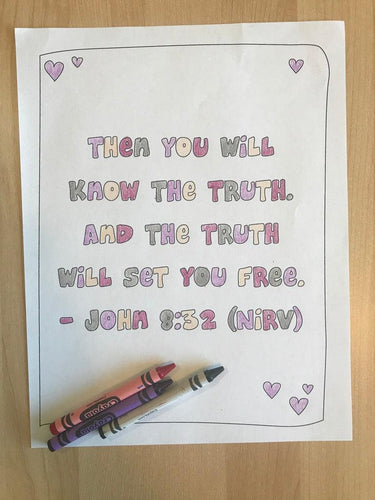 Then you will
know the truth.
And the truth
will set you free.
- John 8:32 (NIRV)
Crayola
Crayola